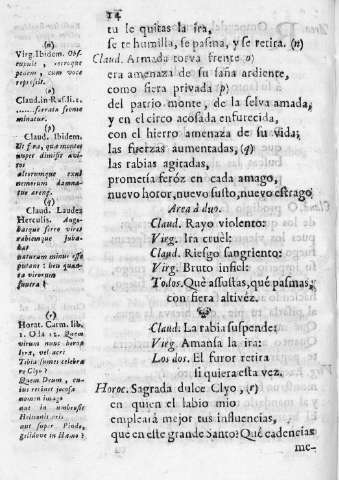 14
tu le quitas la ira,
se te humilla, se pasma, y se retira. (n)
Claud. Armada torva frente o)
era amenaza de su saña ardiente,
como fiera privada p)
del patrio monte, de la selva amada,
y en el circo acosada enfurecida,
con el hierro amenaza de su vida;
las fuerzas aumentadas, (q)
las rabias agitadas,
prometía feróz en cada amago,
nuevo horor, nuevo susto, nuevo estrago
Area à duo.
Claud. Rayo violento:
Virg. Ira cruel:
Claud. Riesgo sangriento:
Virg. Bruto infiel:
Todos. Què assustas, què pasmas,
con fiera altivèz.
Claud. La rabia suspende:
Virg. Amansa la ira:
Los dos. El furor retira
si quiera esta vez.
Horac. Sagrada dulce Clyo, (r)
en quien el labio mio
empleará mejor tus influencias,
que en este grande Santo? Què cadencias
me-
(n)
Virg. Ibidem. Obs-
tupuit, retroque
pedem, cum voce
repressit.
(o)
Claud. in Ruf. li. 1.
......ferrata fronte
minatur.
(p)
Claud. Ibidem.
Ut fera, quæ montes
nuper dimissit avi-
tos
altorumque exul
nemorum damna-
tur areng.
(q)
Claud. Laudea
Herculis. Auge-
batque ferre vires
rabiemque juva-
bat
naturam minus issa
putant: ben quan-
ta virorum
funera!
(r)
Horat. Carm. lib.
1. Oda 12. Quem
virum aut heroa
lyra, vel acri
Tibia sumes celebra
re Clyo?
Quem Deum, cu-
jus recinet jocosa
nomen imago
aut in umbrosis
Heliconis oris
aut super Pindo,
gelidove in Hæmo?